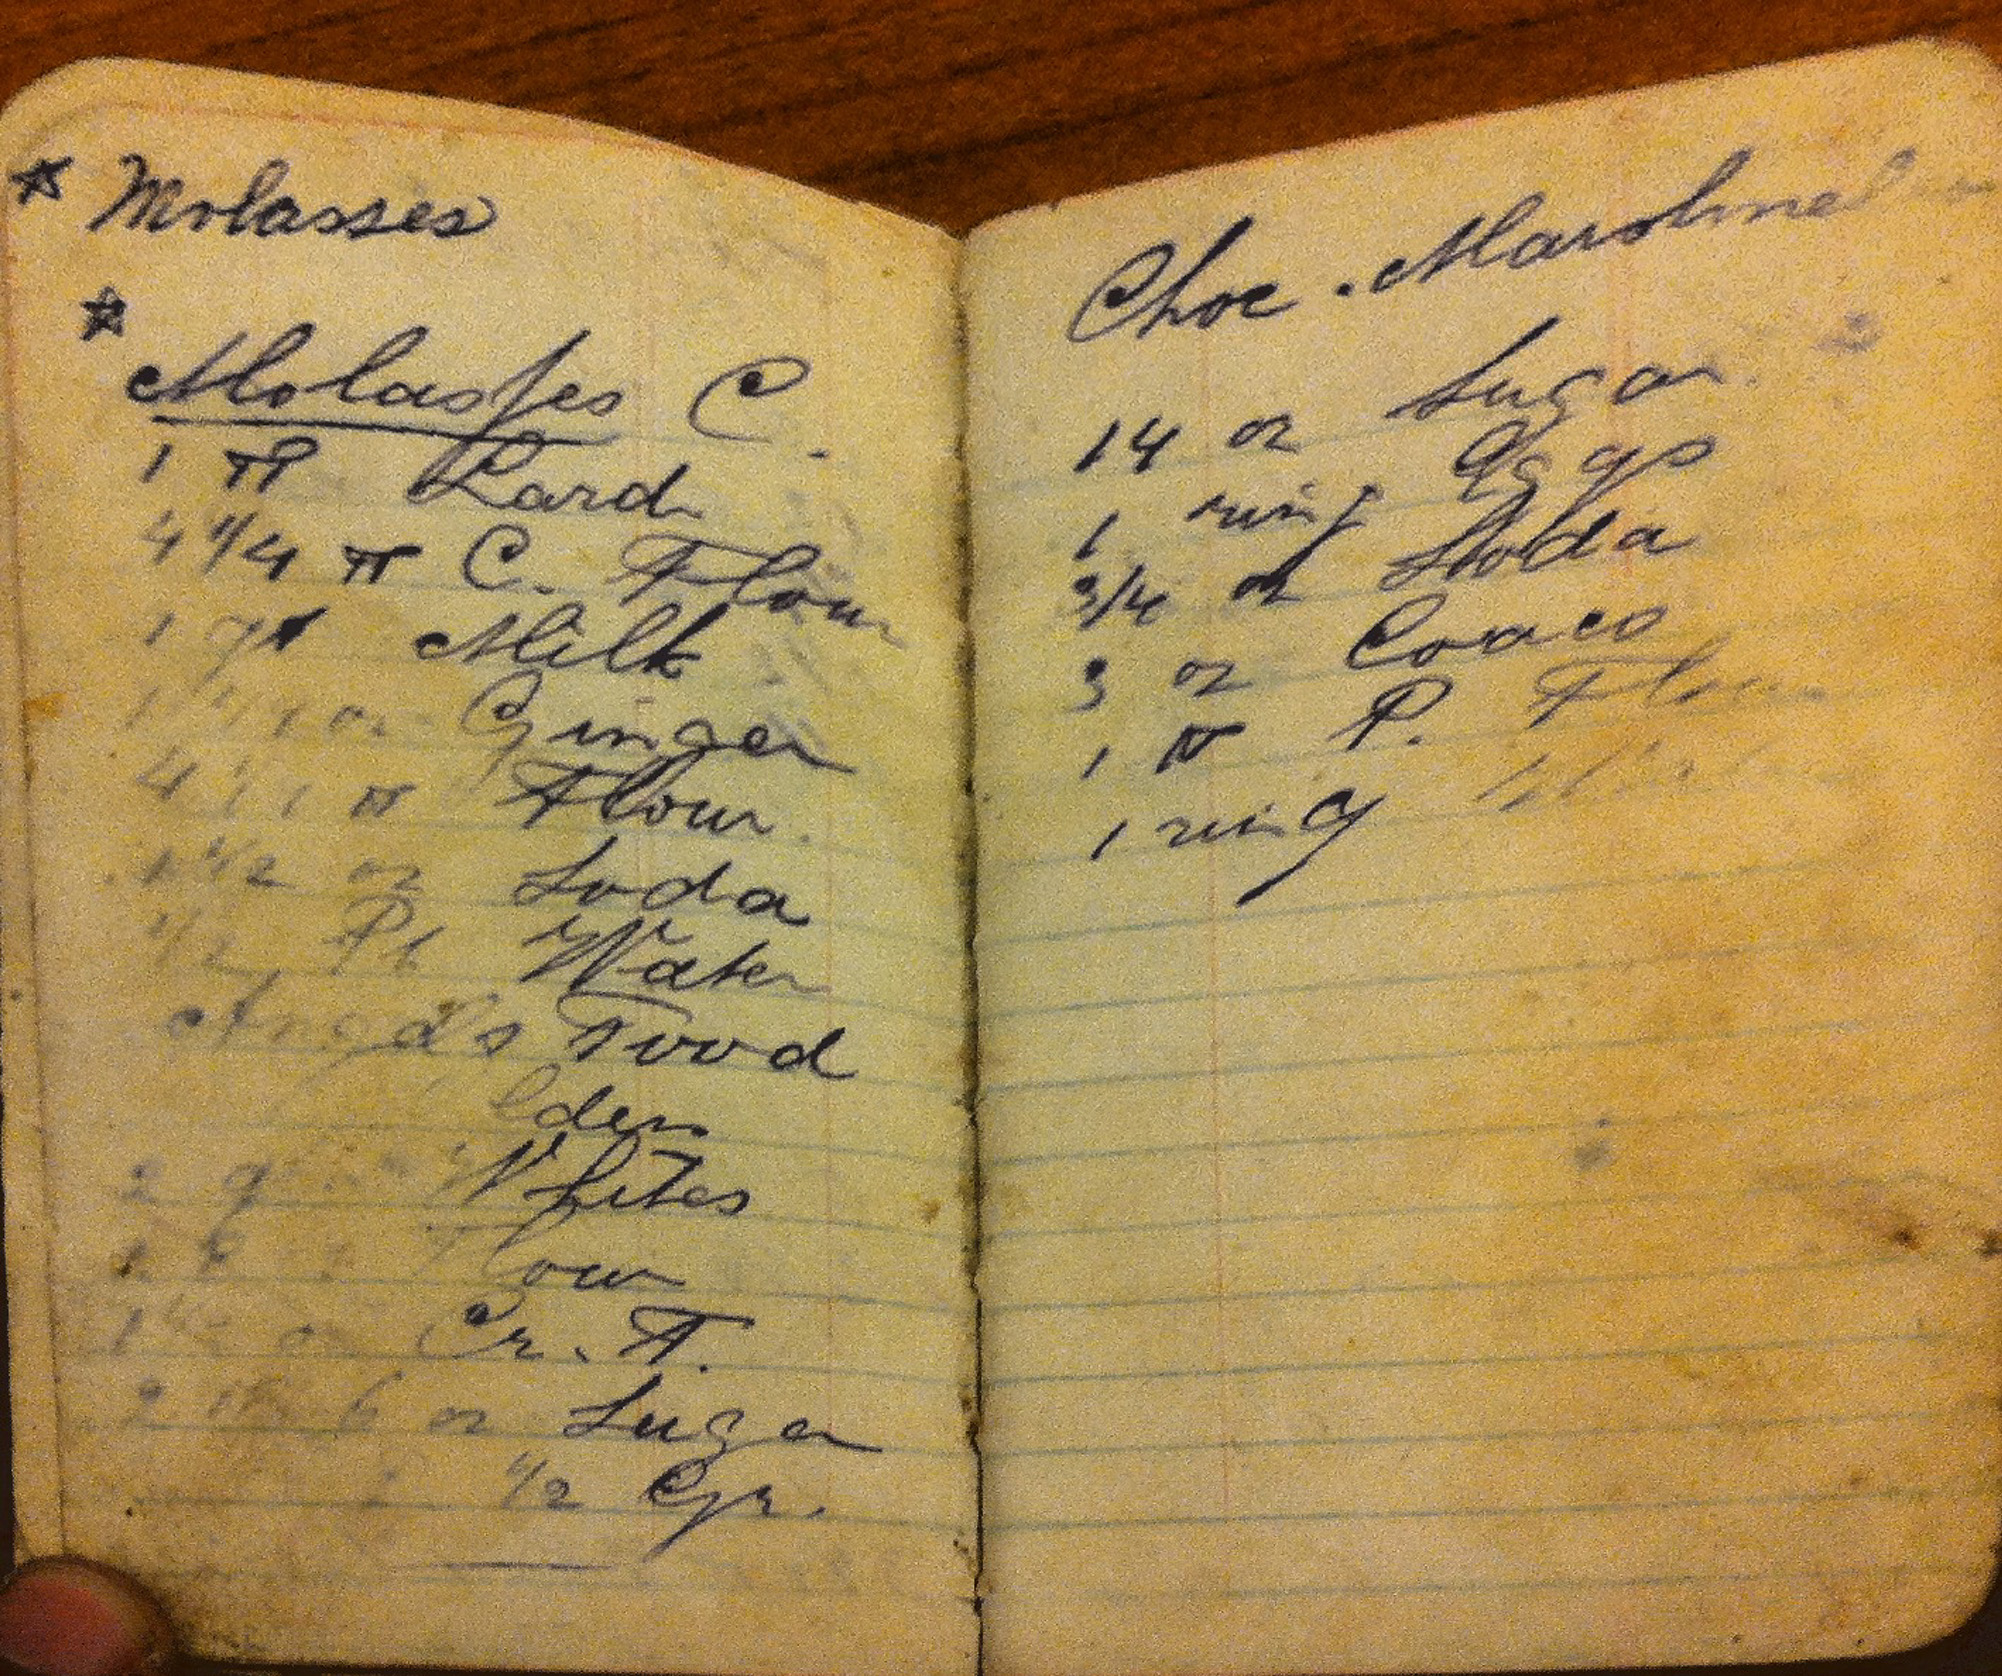 * Molasses
*
Molasses C.
1 lb Lard
4 1/4 lb C. Flour
1 qt Milk
1 oz Ginger
4 lb Flour
1 1/2 oz Soda
1/2 Pt Water
Angel's Food
2 Whites
1 Flour
1 1/2 oz Cr. T.
2 lb 6 oz Sugar
1/2
Choc. Marshmel
14 oz Sugar
1 ring Eggs
3/4 oz Soda
3 oz Coaco
1 lb P. Flour
1 ring